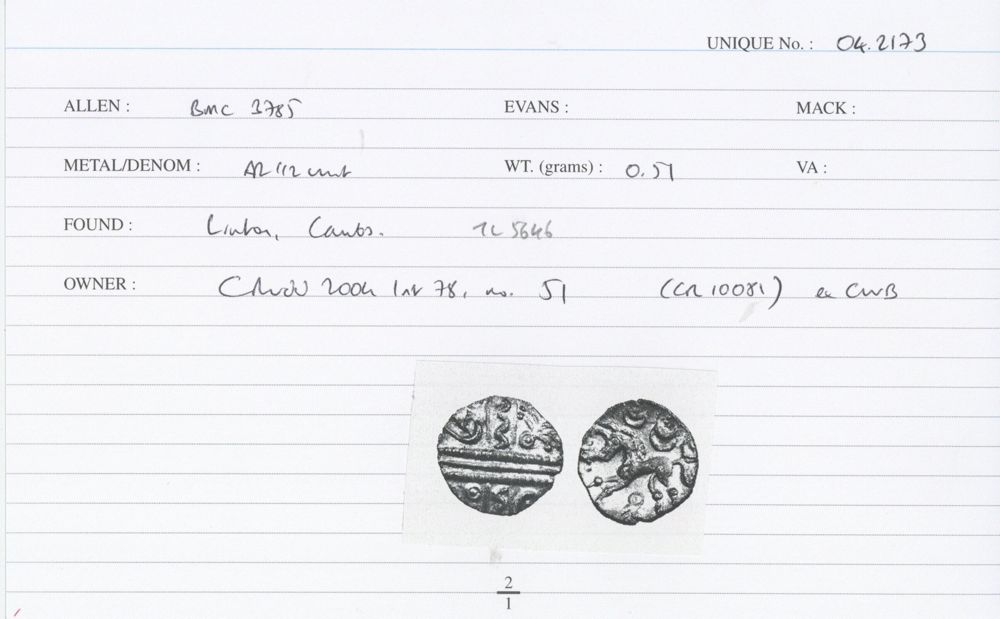 UNIQUE No. : 04.2173
ALLEN : BMC 3785 EVANS : MACK :
METAL/DENOM : AR 1/2 unit WT. (grams) : 0.51 VA :
FOUND : Linton, Cambs. TL 5646
OWNER : 2004 78, no. 51 (CR 10081) ex CWB
2
1